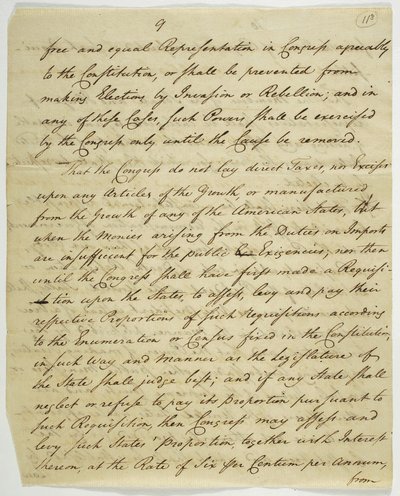 9
118
free and equal Representation in Congress agreeably
to the Constitution, or shall be prevented from
making Elections by Invasion or Rebellion; and in
any of these Cases, such Powers shall be exercised
by the Congress only until the Cause be removed.
That the Congress do not lay direct Taxes, nor Excises
upon any Articles of the Growth or manufactured
from the Growth of any of the American States, but
when the Monies arising from the Duties on Imports
are insufficient for the public Exigencies, nor then
until the Congress shall have first made a Requisi-
-tion upon the States to assess, levy and pay their
respective Proportions of such Requisitions according
to the Enumeration or Census fixed in the Constitution,
in such Way and Manner as the Legislature of
the State shall judge best; and if any State shall
neglect or refuse to pay its Proportion pursuant to
such Requisition, then Congress may assess and
levy such States' Proportion, together with Interest
thereon, at the Rate of Six per Centum per Annum,
from